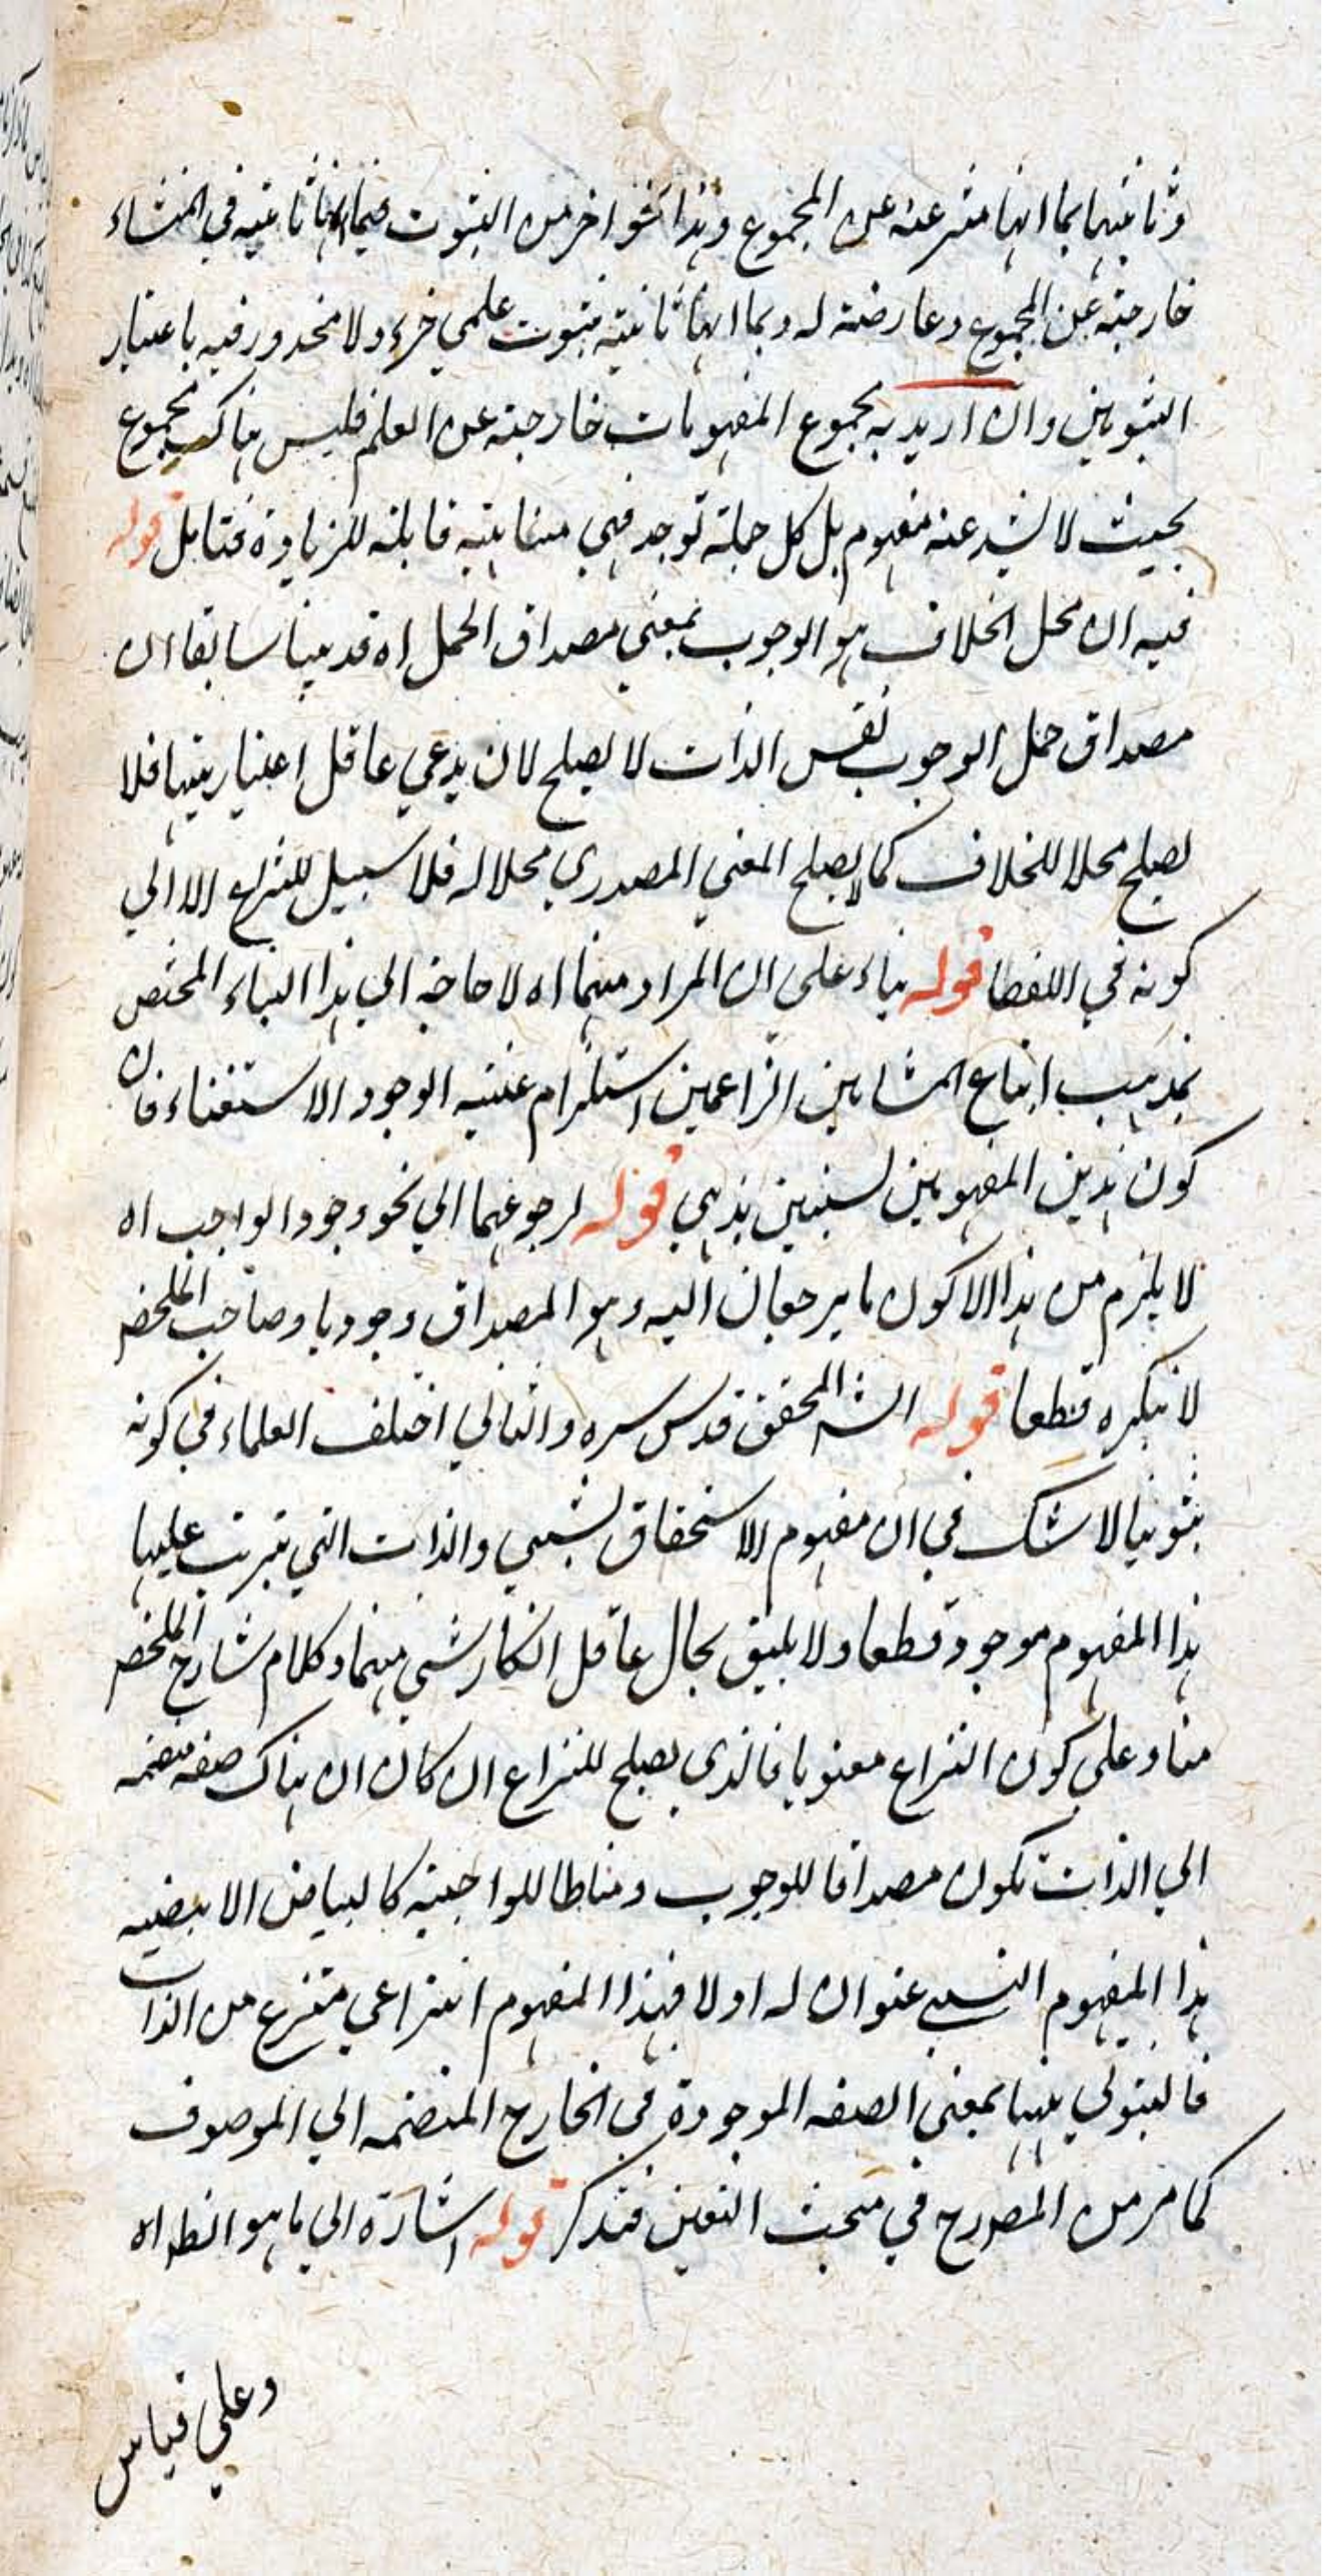 وثانيهما بما انها منتزعة عن المجموع وهذا نحو اخر من الثبوت فبما انها ثابتة في المنشاء
خارجة عن المجموع وعارضة له وبما انها ثابتة بثبوت علمي جزء ولا محذور فيه باعتبار
الثبوتين وان اريد به مجموع المفهومات خارجة عن العلم فليس هناك مجموع
بحيث لا يشذ عنه مفهوم بل كل جملة توجد فهي متناهية قابلة للزيادة فتامل قوله
فيه ان محل الخلاف هو الوجوب بمعنى مصداق الحمل اه قد بينا سابقا ان
مصداق حمل الوجوب نفس الذات لا يصلح لان يدعي عاقل اعتباريتها فلا
يصلح محلا للخلاف كما لا يصلح المعني المصدري محلا له فلا سبيل للنزاع الا الي
كونه في اللفظ قوله بناء على ان المراد منهما اه لا حاجة الي هذا البناء المختص
بمذهب اتباع المشايين الزاعمين استلزام عينية الوجود الاستغناء فان
كون هذين المفهومين لسببين بذهي قوله لرجوعهما الي نحو وجود الواجب اه
لا يلزم من هذا الا كون ما يرجعان اليه وهو المصداق وجوديا وصاحب الملخص
لا ينكره قطعا قوله الشه المحقق قدس سره والثاني اختلف العلماء في كونه
ثبوتيا لا شك في ان مفهوم الاستحقاق نسبي والذات التي يترتب عليها
هذا المفهوم موجود قطعا ولا يليق بحال عاقل انكار شي منهما وكلام شارح الملخص
مناد على كون النزاع معنويا فالذي يصلح للنزاع ان كان ان هناك صفة منضمة
الي الذات تكون مصداقا للوجوب ومناطا للواجبية كالبياض الابيضية
هذا المفهوم النسبي عنوان له اولا فهذا المفهوم انتزاعي منتزع من الذات
فالثبوتي ههنا بمعني الصفة الموجودة في الخارج المنضمة الي الموصوف
كما مر من المصرح في مبحث التعين فتذكر قوله اشارة الي ما هو الظ اه
وعلي قياس